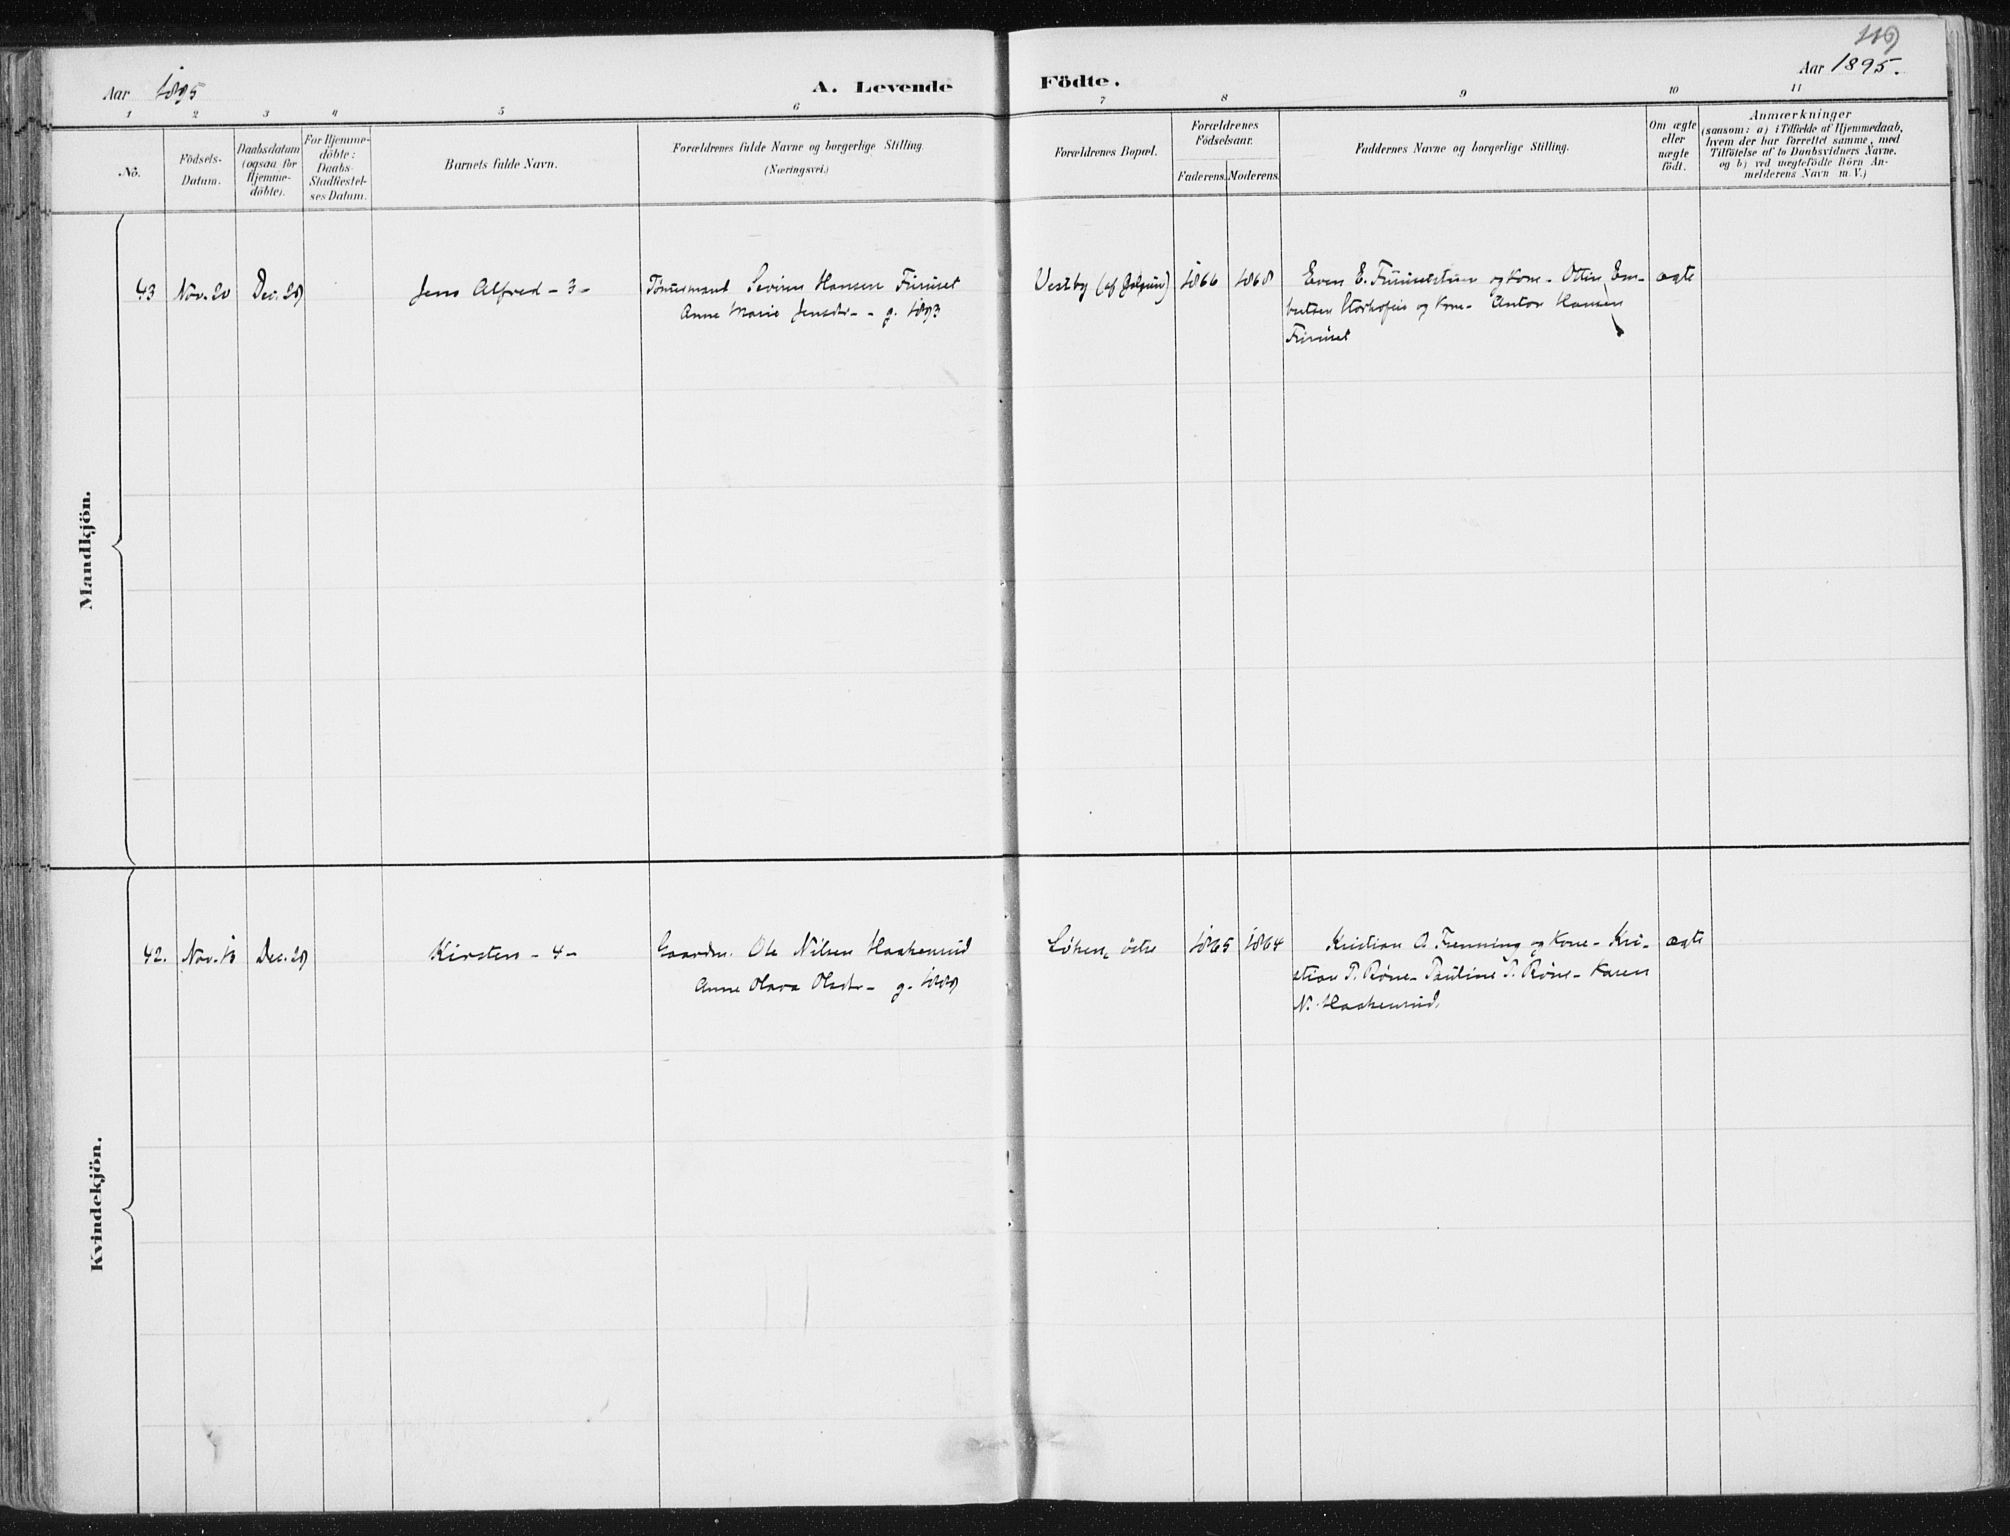 119
Aar 1895
A. Levende Födte.
Aar 1895.
1 2 3 4 5 6 7 8 9 10 11
No.
Födsels-
Datum.
Daabsdatum
(ogsaa for
Hjemme-
döbte).
For Hjemme-
döbte:
Daabs-
Stadfæstel-
ses Datum.
Barnets fulde Navn.
Forældrenes fulde Navne og borgerlige Stilling.
(Næringsvei.)
Forældrenes Bopæl.
Forældrenes
Födselsaar.
Faderens. Moderens.
Faddernes Navne og borgerlige Stilling.
Om ægte
eller
uægte
födt.
Anmærkninger
(saasom: a) i Tilfælde af Hjemmedaab,
hvem der har forrettet samme, med
Tilföielse af to Daabsvidners Navne.
og b) ved uægtefödte Börn An-
melderens Navn m. V.)
Mandkjön.
43 Nov. 20 Dec. 29 Jens Alfred - 3 -
Tömmermand Severin Hansen
Anne Marie Jensdtr - g. 1893
Vestby 1866 1868
Even E. og Kone - Otter Em-
og Kone - Anton Hansen
ægte
Kvindekjön.
42. Nov. Dec. 29 Kirsten - 4 -
Gaardm. Ole Nilsen Haakenrud
Anne Olava Olsdtr - g. 1889
Löken, östre 1865 1864
Kristian A. Frenning og Kone - Kri-
stian P. Röne - Pauline P. Röne - Karen
N. Haakenrud.
ægte